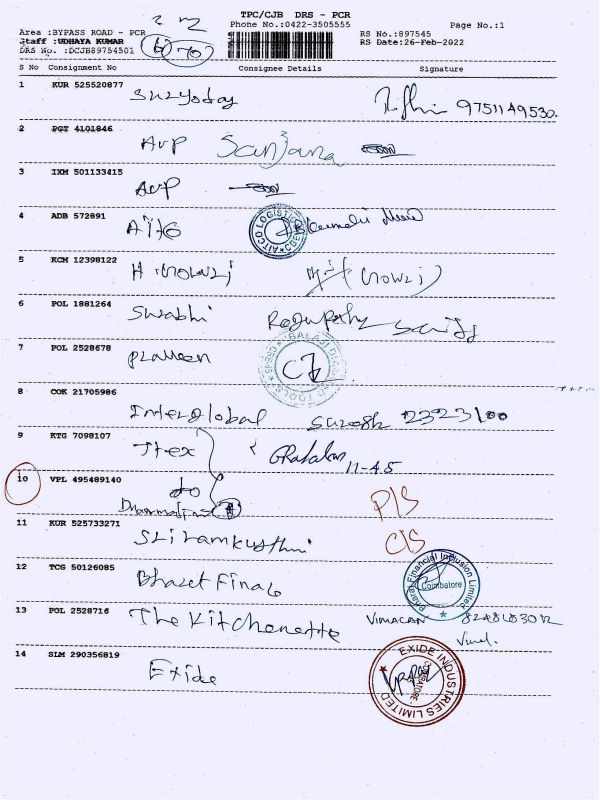 TPC/CJB DRS - PCR
Phone No.:0422-3505555
Page No.:1
Area :BYPASS ROAD - PCR
Staff :UDHAYA KUMAR
DRS No. :DCJB89754501
70
RS No.:897545
RS Date:26-Feb-2022
S No Consignment No Consignee Details Signature
1 KUR 525520877
Suryoday 9751149530.
2 PGT 4101846
AVP Sanjana
3 IXM 501133415
AVP
4 ADB 572891
AITCO LOGISTICS
5 KCM 12398122
H. Gowri (Gowri)
6 POL 1881264
Swabhi Regupathy
7 POL 2528678
Praveen
8 COK 21705986
Interglobal Suresh
9 KTG 7098107
Ttex 11-45
10 VPL 495489140
do P/S
11 KUR 525733271
C/S
12 TCG 50126085
Bharat Financial Inclusion Limited
Coimbatore
13 POL 2528716
The Kitchenette
Vimal.
14 SLM 290356819
Exide
EXIDE INDUSTRIES LIMITED